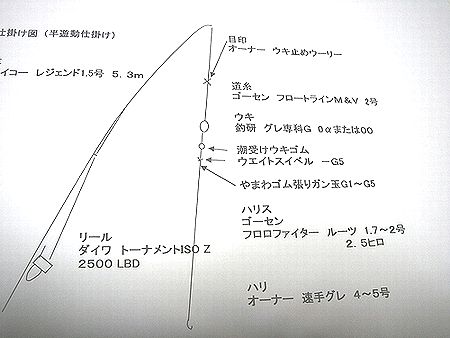 仕掛け図（半遊動仕掛け）
イコー レジェンド1.5号 5.3m
目印
オーナー ウキ止めウーリー
道糸
ゴーセン フロートラインM&V 2号
ウキ
釣研 グレ専科G 0αまたは00
潮受けウキゴム
ウエイトスイベル －G5
やまわゴム張りガン玉G1～G5
ハリス
ゴーセン
フロロファイター ルーツ 1.7～2号
2.5ヒロ
リール
ダイワ トーナメントISO Z
2500 LBD
ハリ
オーナー 速手グレ 4～5号